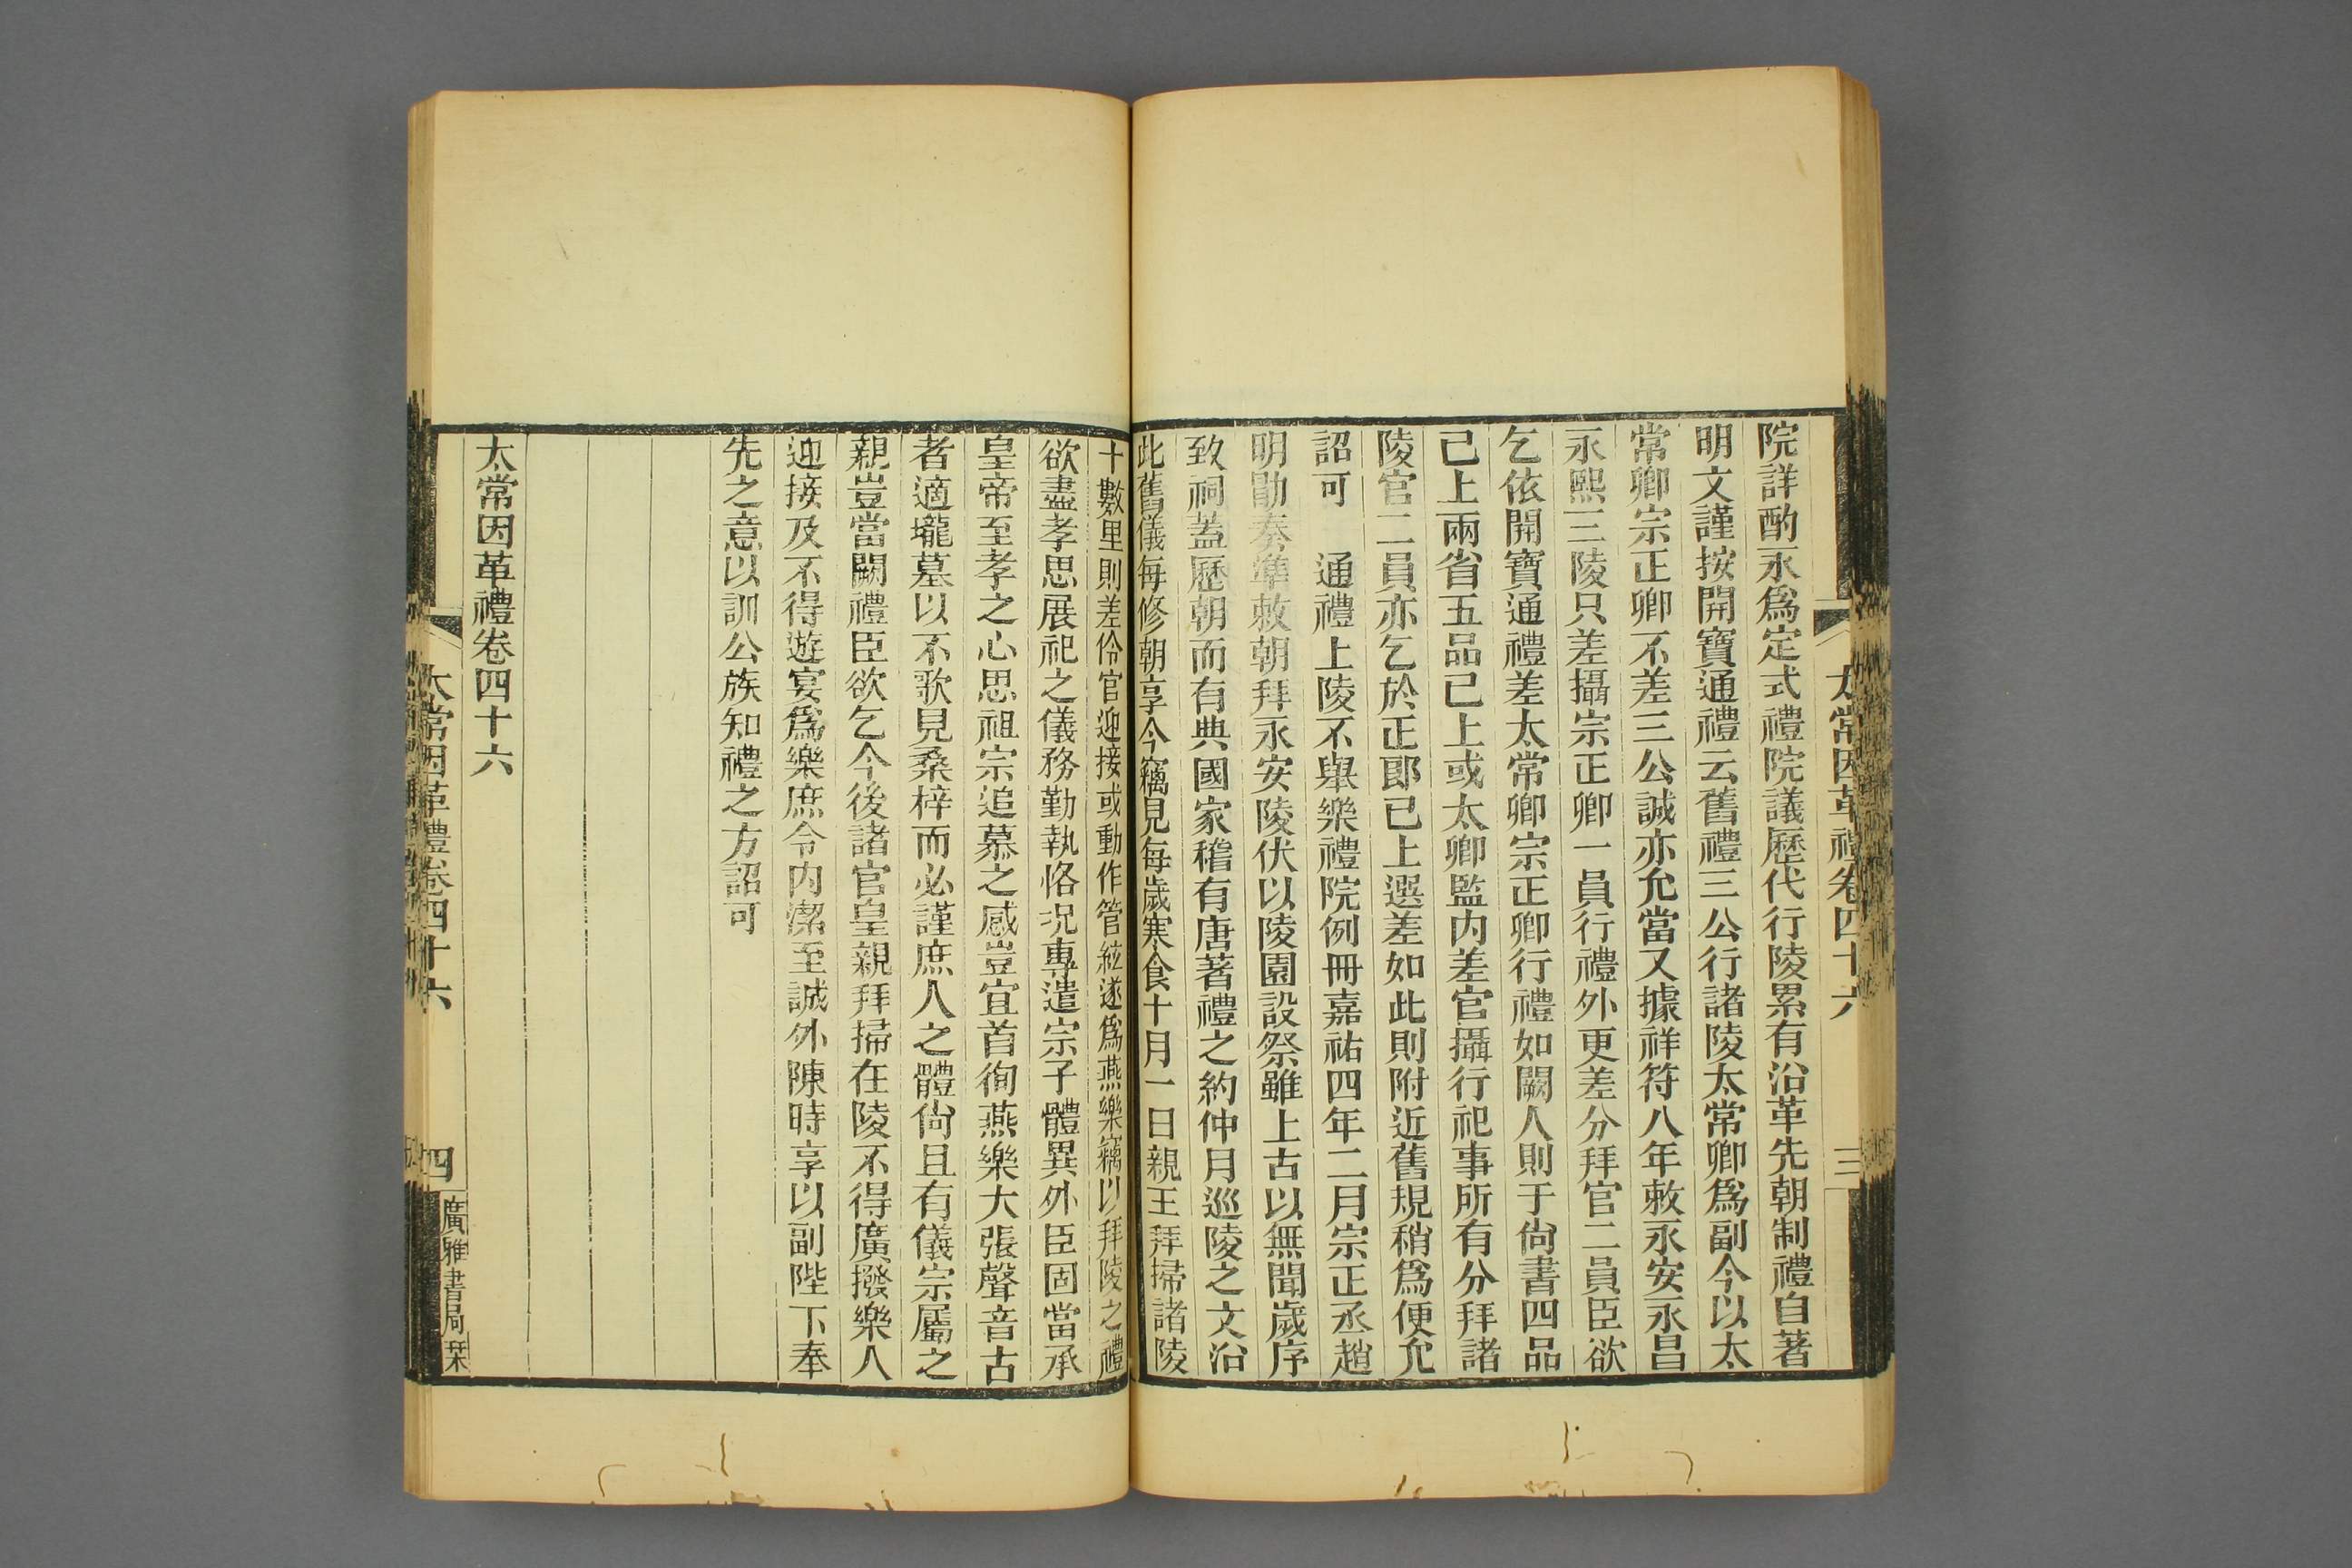 太常因革禮卷四十六
三
院詳酌永爲定式禮院議歷代行陵累有沿革先朝制禮自著
明文謹按開寶通禮云舊禮三公行諸陵太常卿爲副今以太
常卿宗正卿不差三公誠亦允當又據祥符八年敕永安永昌
永熙三陵只差攝宗正卿一員行禮外更差分拜官二員臣欲
乞依開寶通禮差太常卿宗正卿行禮如闕人則于尙書四品
已上兩省五品已上或太卿監內差官攝行祀事所有分拜諸
陵官二員亦乞於正郞已上選差如此則附近舊規稍爲便允
詔可　通禮上陵不舉樂禮院例冊嘉祐四年二月宗正丞趙
明勖奏準敕朝拜永安陵伏以陵園設祭雖上古以無聞歲序
致祠蓋歷朝而有典國家稽有唐著禮之約仲月巡陵之文沿
此舊儀每修朝享今竊見每歲寒食十月一日親王拜掃諸陵
十數里則差伶官迎接或動作管絃遂爲燕樂竊以拜陵之禮
欲盡孝思展祀之儀務勤執恪况專遣宗子體異外臣固當承
皇帝至孝之心思祖宗追慕之感豈宜首徇燕樂大張聲音古
者適壠墓以不歌見桑梓而必謹庶人之體尙且有儀宗屬之
親豈當闕禮臣欲乞今後諸官皇親拜掃在陵不得廣撥樂人
迎接及不得遊宴爲樂庶令內潔至誠外陳時享以副陛下奉
先之意以訓公族知禮之方詔可
太常因革禮卷四十六
太常因革禮卷四十六
四
廣雅書局栞